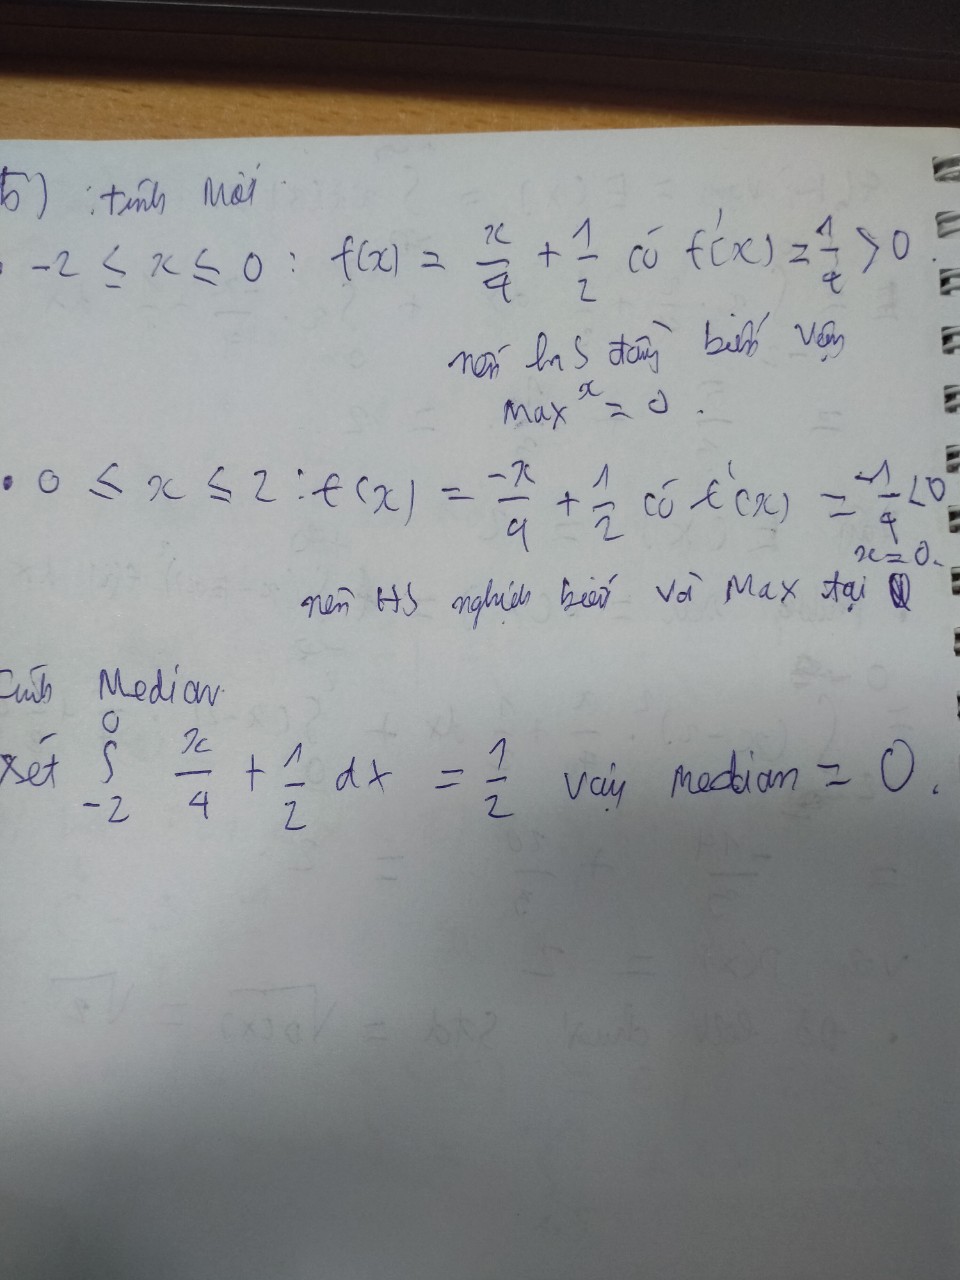 b) : tính Mod
• -2 ≤ x ≤ 0 : f(x) = x/4 + 1/2 có f'(x) = 1/4 > 0.
nên hS đồng biến vậy
Max x = 0.
• 0 ≤ x ≤ 2 : f(x) = -x/4 + 1/2 có f'(x) = -1/4 < 0
nên HS nghịch biến và Max tại x = 0.
Tính Median
Xét ∫_{-2}^{0} x/4 + 1/2 dx = 1/2 vậy median = 0.